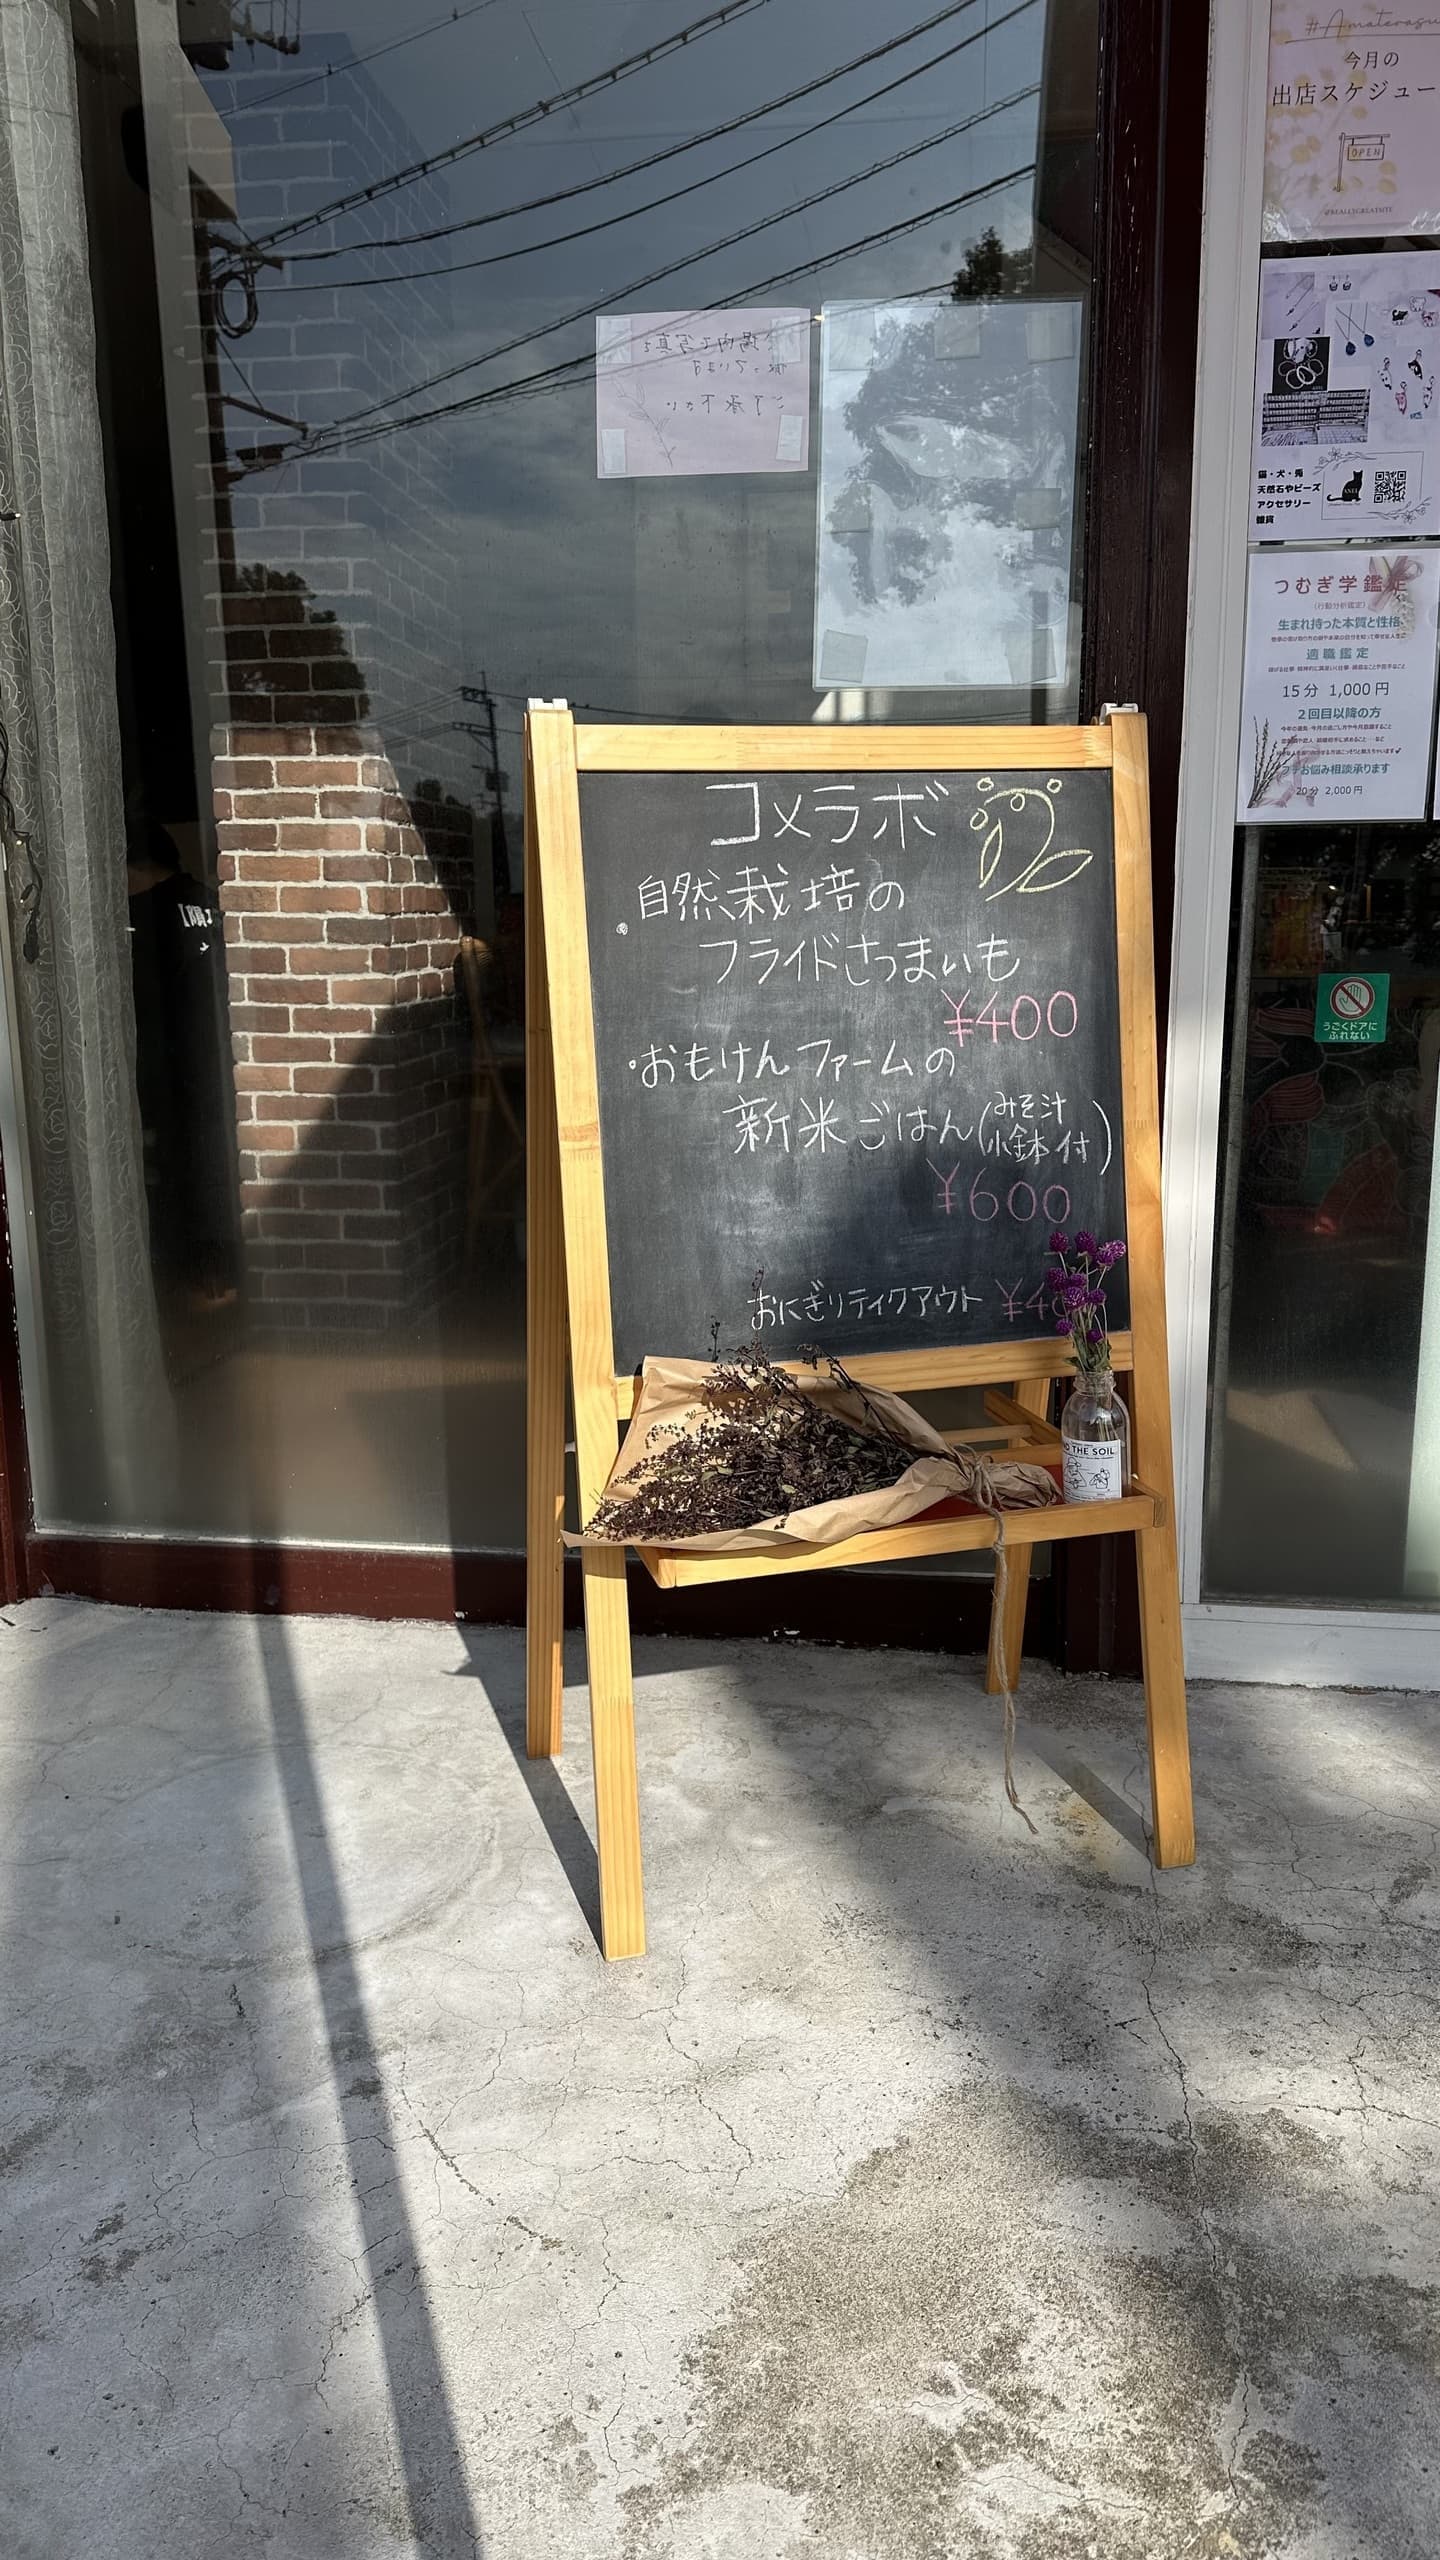 コメラボ
・自然栽培の
フライドさつまいも
¥400
・おもけんファームの
新米ごはん(みそ汁
小鉢付)
¥600
おにぎりテイクアウト ¥40
O THE SOIL
会場内を写真を
撮っています
ご了承下さい
#Amaterasu
今月の
出店スケジュー
OPEN
@REALLYGREATSITE
猫・犬・兎
天然石やビーズ
アクセサリー
雑貨
つむぎ学鑑定
(行動分析鑑定)
生まれ持った本質と性格
適職鑑定
15分 1,000円
2回目以降の方
プチお悩み相談承ります
20分 2,000円
うごくドアに
ふれない